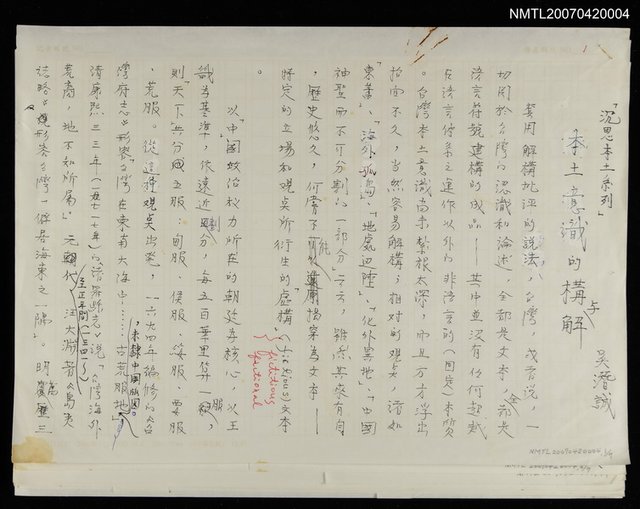 NMTL20070420004
「沉思本土系列」
本土意識的構與解
吳潛誠
套用解構批評的說法,「台灣」,或者說,一
切關於台灣的認識和論述,全部是文本,全是
語言符號建構的成品——其中並沒有任何超越
在語言體系之運作以外的非語言的(固定)本質
。台灣本土意識尚未紮根太深,而且方才浮出
抬面不久,當然容易解構;相對的觀點,諸如
東番」、「海外孤島」、「地處邊陲」、「化外異地」、「中國
神聖而不可分割的一部分」云云,雖然其來有自
,歷史悠久,何嘗不能視為文本——
特定的立場和觀點所衍生的虛構(fictious)文本
fictitious
fictional
。
以「中國」政治權力所在的朝廷為核心,以王
畿為基準,依遠近劃分,每五百華里算一服,
則天下共分成五服:甸服、侯服、綏服、要服
、荒服。從這種觀點出發,一六九四年編修的《台
灣府志》形容台灣在東南大海中……古荒服地,未隸中國版圖。
清康熙三三年(一七一七年)的《諸羅縣志》說「台灣海外
荒島,地不知所屬。」元朝代,汪大淵著《島夷
至正年間(一三四一)
誌略》形容台灣「僻居海東之一隅」。明萬曆三
NMTL20070420004